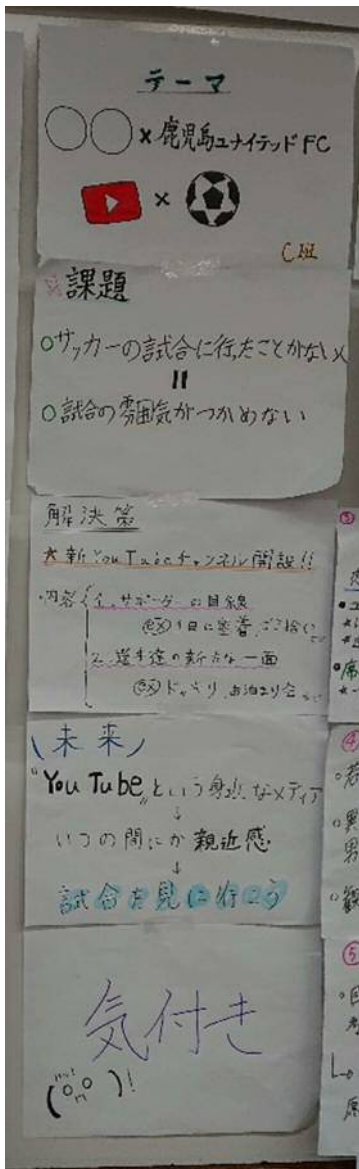 テーマ
○○×鹿児島ユナイテッドFC
×
C班
課題
○サッカーの試合に行ったことがない人
=
○試合の雰囲気がつかめない
解決策
★新YouTubeチャンネル開設!!
・内容
1.サポーターの目線
ex)1日に密着、ごみ拾い
2.選手達の新たな一面
ex)ドッキリ、お泊まり会
\未来/
"YouTube"という身近なメディア
↓
いつの間にか親近感
↓
試合を見に行こう
気付き
③
④
⑤